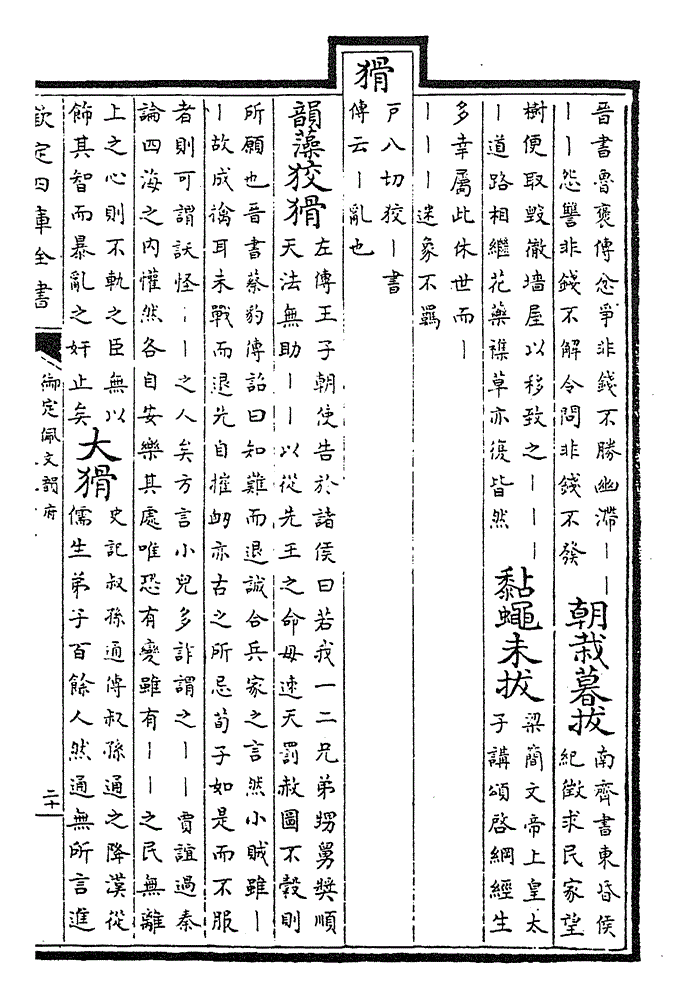 猾
晉書魯褒傳忿爭非錢不勝幽滯丨丨
丨丨怨讐非錢不解令問非錢不發
朝栽暮拔
南齊書東昏侯
紀徵求民家望
樹便取毀徹墻屋以移致之丨丨丨
丨道路相繼花藥襍草亦復皆然
黏蠅未拔
梁簡文帝上皇太
子講頌啓綱經生
多幸屬此休世而丨
丨丨丨迷象不羈
戸八切狡丨書
傳云丨亂也
韻藻狡猾
左傳王子朝使告於諸侯曰若我一二兄弟甥舅奬順
天法無助丨丨以從先王之命毋速天罰赦圖不穀則
所願也晉書蔡豹傳詔曰知難而退誠合兵家之言然小賊雖丨
丨故成擒耳未戰而退先自摧衂亦古之所忌荀子如是而不服
者則可謂訞怪丨丨之人矣方言小兒多詐謂之丨丨賈誼過秦
論四海之內懽然各自安樂其處唯恐有變雖有丨丨之民無離
上之心則不軌之臣無以
飾其智而暴亂之奸止矣
大猾
史記叔孫通傳叔孫通之降漢從
儒生弟子百餘人然通無所言進
欽定四庫全書
御定佩文韻府
二十